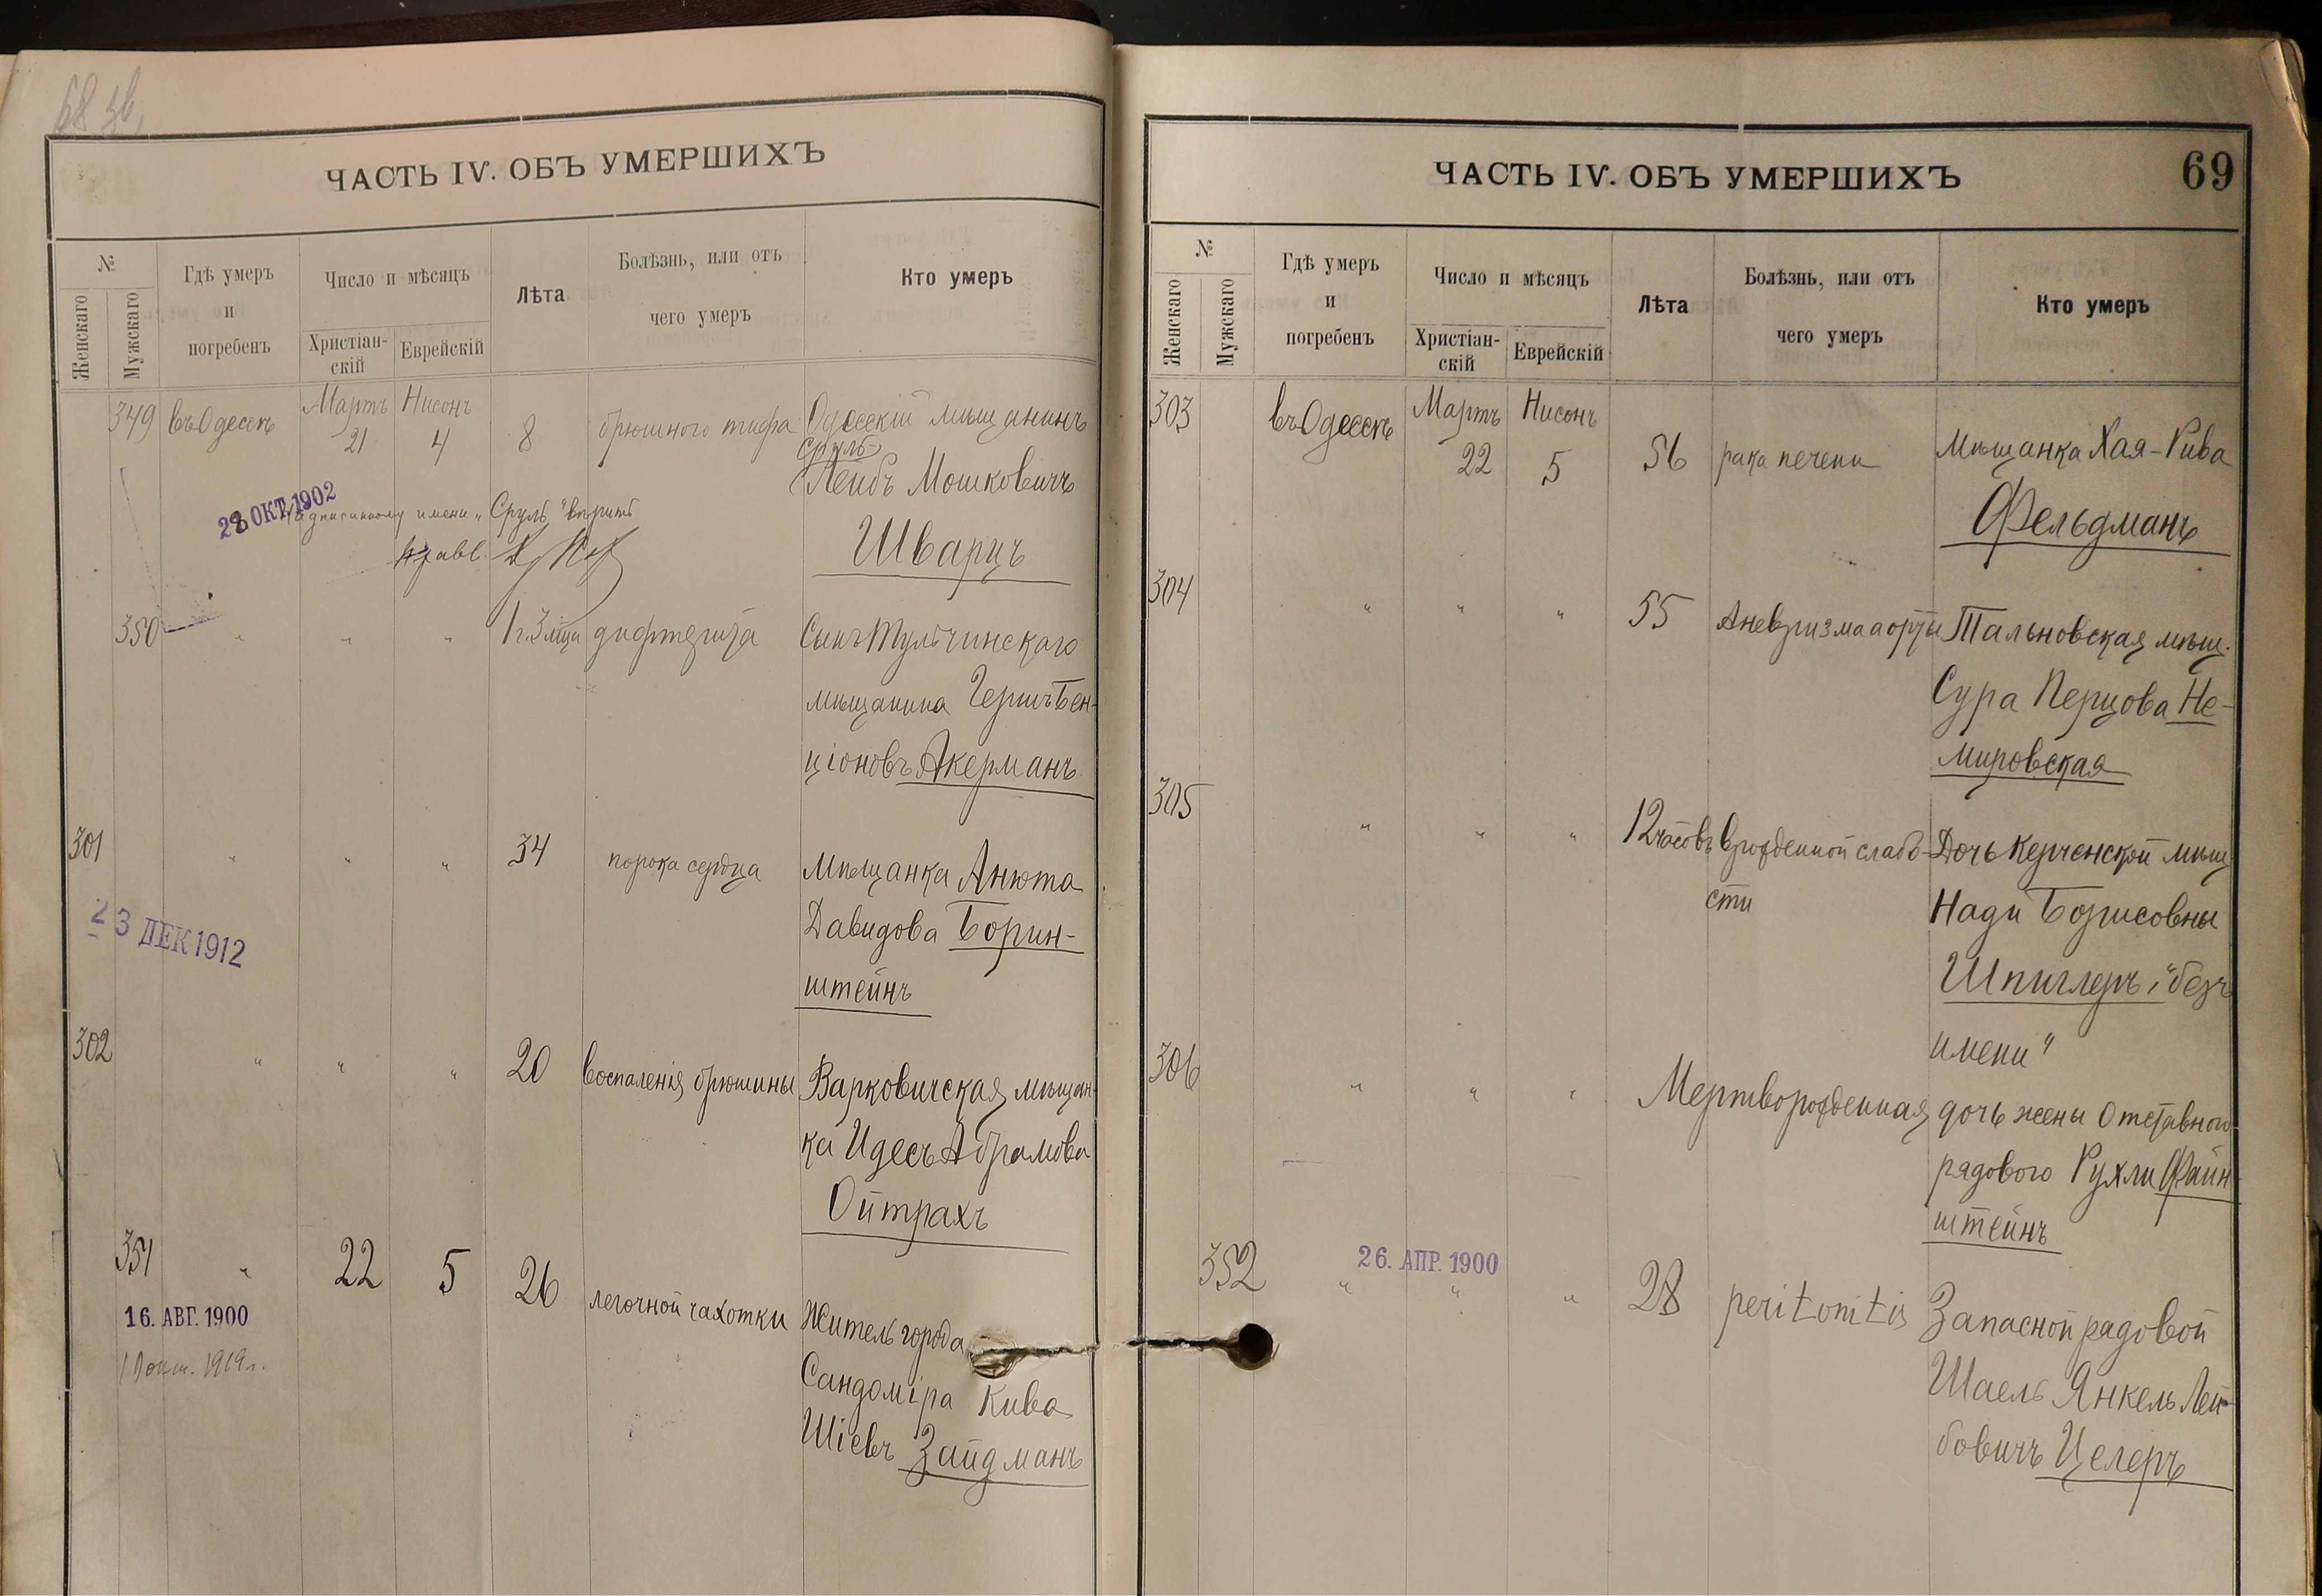 68 зв.
ЧАСТЬ IV. ОБЪ УМЕРШИХЪ
№
Женскаго
Мужскаго
Гдѣ умеръ
и
погребенъ
Число и мѣсяцъ
Христіан-
скій
Еврейскій
Лѣта
Болѣзнь, или отъ
чего умеръ
Кто умеръ
349 въ Одессѣ Мартъ 21 Нисонъ 4 8 брюшного тифа Одесскій мѣщанинъ
Сруль
Лейбъ Мошковичъ
Шварцъ
28 ОКТ. 1902
имени „Сруль“ вѣрить
350 " " " 1 г. 3 мѣца дифтерита Сынъ Тульчинскаго
мѣщанина Гершъ Бен-
ціоновъ Акерманъ
301 " " " 34 порока сердца Мѣщанка Анюта
Давидова Борин-
штейнъ
23 ДЕК 1912
302 " " " 20 воспаленія брюшины Варковичская мѣщан-
ка Идесъ Абрамова
Ойтрахъ
351 " 22 5 26 легочной чахотки Житель города
Сандоміра Кива
Шіевъ Зайдманъ
16. АВГ. 1900
окт. 1919 г.
ЧАСТЬ IV. ОБЪ УМЕРШИХЪ
69
№
Женскаго
Мужскаго
Гдѣ умеръ
и
погребенъ
Число и мѣсяцъ
Христіан-
скій
Еврейскій
Лѣта
Болѣзнь, или отъ
чего умеръ
Кто умеръ
303 въ Одессѣ Мартъ 22 Нисонъ 5 56 рака печени Мѣщанка Хая-Рива
Фельдманъ
304 " " " 55 Аневризма аорты Тальновская мѣщ.
Сура Перцова Не-
мировская
305 " " " 12 часовъ врожденной слабо- Дочь Керченской мѣщ.
сти
Нади Борисовны
Шпиглеръ, „безъ
имени“
306 " " " Мертворожденная дочь жены Отставного
рядового Рухли Файн-
штейнъ
352 " " " 28 peritonitis Запасной рядовой
26. АПР. 1900
Шаель Янкель Лей-
бовичъ Целеръ